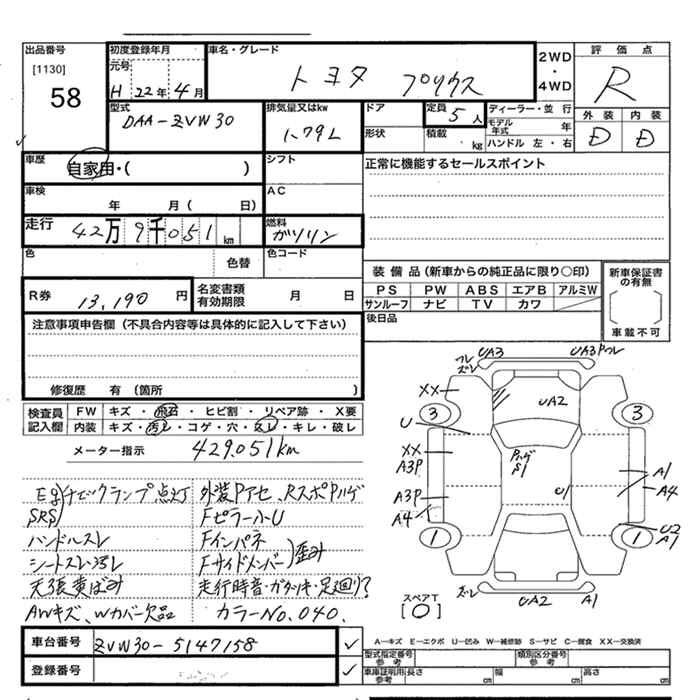 出品番号
[1130]
58
初度登録年月
元号
H 22年 4月
車名・グレード
トヨタ プリウス
2WD
・
4WD
評価点
R
外装 内装
D D
型式
DAA-ZVW30
排気量又はkw
1.79L
ドア
定員 5人
形状
積載 kg
ディーラー・並行
モデル年式 年
ハンドル 左・右
車歴
自家用・( )
シフト
正常に機能するセールスポイント
車検
年 月( 日)
AC
走行
42万9千051km
燃料
ガソリン
色
色替
色コード
R券
13,190円
名変書類有効期限
月 日
装備品(新車からの純正品に限り〇印)
PS PW ABS エアB アルミW
サンルーフ ナビ TV カワ
新車保証書の有無
車載不可
後日品
注意事項申告欄(不具合内容等は具体的に記入して下さい)
修復歴 有(箇所 )
検査員記入欄
FW キズ・飛石・ヒビ割・リペア跡・X要
内装 キズ・汚レ・コゲ・穴・スレ・キレ・破レ
メーター指示 429.051km
Eg)チェックランプ点灯
SRS)
ハンドルスレ
シートスレ・汚レ
天張黄ばみ
AWキズ、Wカバー欠品
外装Pアセ、RスポPハゲ
FピラーハーU
Fインパネ
Fサイドメンバー)歪み
走行時音・ガタツキ・足廻り?
カラーNo.040.
フレ
ズレ
UA3
UA3Pウレ
XX
3
UA2
3
U
XX
A3P
Pハゲ
S1
A3P
A4
U1
A1
A4
1
1
U2
A1
ズレ
UA2
A1
スペアT
[0]
車台番号
ZVW30-5147158
✓
登録番号
✓
A―キズ E―エクボ U―凹み W―補修跡 S―サビ C―腐食 XX―交換済
型式指定番号
参考
類別区分番号
参考
車庫証明用
参考
長さ cm
幅 cm
高さ cm